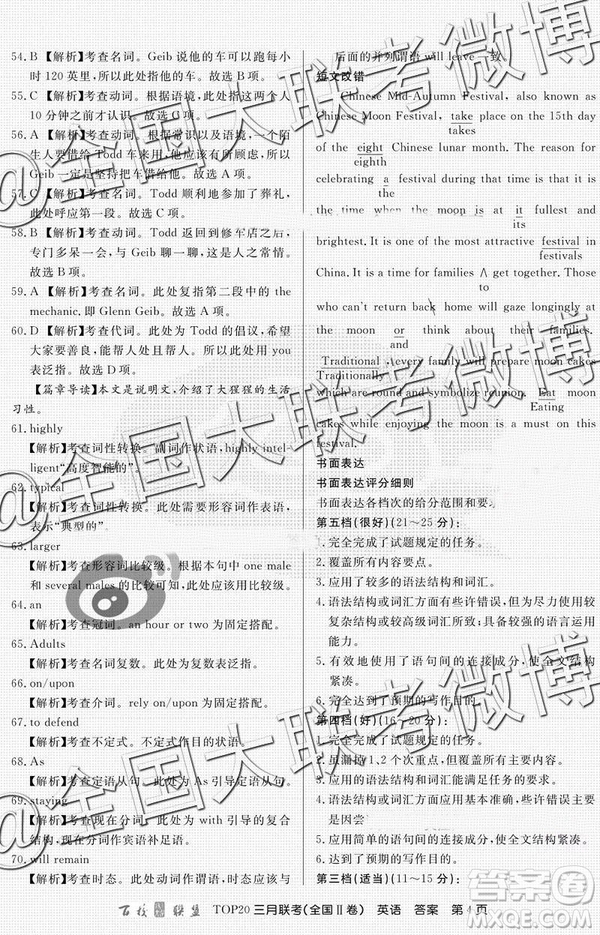 54. B 【解析】考查名词。Geib 说他的车可以跑到每小
时 120 英里,所以此处指他的车。故选 B 项。
55. C 【解析】考查动词。根据语境,一直到这两个人
10 分钟之前才认识。故选 C 项。
56. A 【解析】考查动词。根据常识以及语境,一个陌
生人要借给 Todd 车来用,他应该有所顾虑,所以
Geib 一定是坚持把车借给他。故选 A 项。
57. C 【解析】考查动词。Todd 顺利地参加了葬礼,
此处呼应第一段。故选 C 项。
58. B 【解析】考查动词。Todd 返回到修车店之后,
专门多呆一会,与 Geib 聊一聊,这是人之常情。
故选 B 项。
59. A 【解析】考查名词。此处复指第二段中的 the
mechanic. 即 Glenn Geib。故选 A 项。
60. D 【解析】考查代词。此处为 Todd 的倡议,希望
大家要善良,能帮人处且帮人。所以此处用 you
表泛指。故选 D 项。
【篇章导读】本文是说明文,介绍了大猩猩的生活
习性。
61. highly
【解析】考查词性转换。副词作状语,highly intel-
ligent“高度智能的”。
62. typical
【解析】考查词性转换。此处需要形容词作表语,
表示“典型的”。
63. larger
【解析】考查形容词比较级。根据本句中 one male
和 several males 的比较可知,此处应该用比较级。
64. an
【解析】考查冠词。an hour or two 为固定搭配。
65. Adults
【解析】考查名词复数。此处为复数表泛指。
66. on/upon
【解析】考查介词。rely on/upon 为固定搭配。
67. to defend
【解析】考查不定式。不定式作目的状语。
68. As
【解析】考查定语从句。此处为 As 引导定语从句。
69. staying
【解析】考查现在分词。此处为 with 引导的复合
结构,现在分词作宾语补足语。
70. will remain
【解析】考查时态。此处为一般将来时态,
后面的并列谓语 will leave 一致。
短文改错
Chinese Mid-Autumn Festival, also known as
Chinese Moon Festival, take place on the 15th day
takes
of the eight Chinese lunar month. The reason for
eighth
celebrating a festival during that time is that it is
the
the time when the moon is at it fullest and
its
brightest. It is one of the most attractive festival in
festivals
China. It is a time for families ∧ get together. Those
to
who can't return back home will gaze longingly at
the moon or think about their families.
and
Traditional, (every) family will prepare moon cakes
Traditionally,
which are round and symbolize reunion. Eat moon
Eating
cakes while enjoying the moon is a must on this
festival.
书面表达
书面表达评分细则
书面表达各档次的给分范围和要求:
第五档(很好)(21~25 分):
1. 完全完成了试题规定的任务。
2. 覆盖所有内容要点。
3. 应用了较多的语法结构和词汇。
4. 语法结构或词汇方面有些许错误,但为尽力使用较
复杂结构或较高级词汇所致;具备较强的语言运用能
力。
5. 有效地使用了语句间的连接成分,使全文结构
紧凑。
6. 完全达到了预期的写作目的。
第四档(好)(16~20 分):
1. 完全完成了试题规定的任务。
2. 虽漏掉 1、2 个次重点,但覆盖所有主要内容。
3. 应用的语法结构和词汇能满足任务的要求。
4. 语法结构或词汇方面应用基本准确,些许错误是
因尝
5. 应用简单的语句间的连接成分,使全文结构紧凑。
6. 达到了预期的写作目的。
第三档(适当)(11~15 分):
百校联盟 TOP20 三月联考(全国Ⅱ卷) 英语 答案 第 4 页
@全国大联考微博
@全国大联考微博
@全国大联考微博